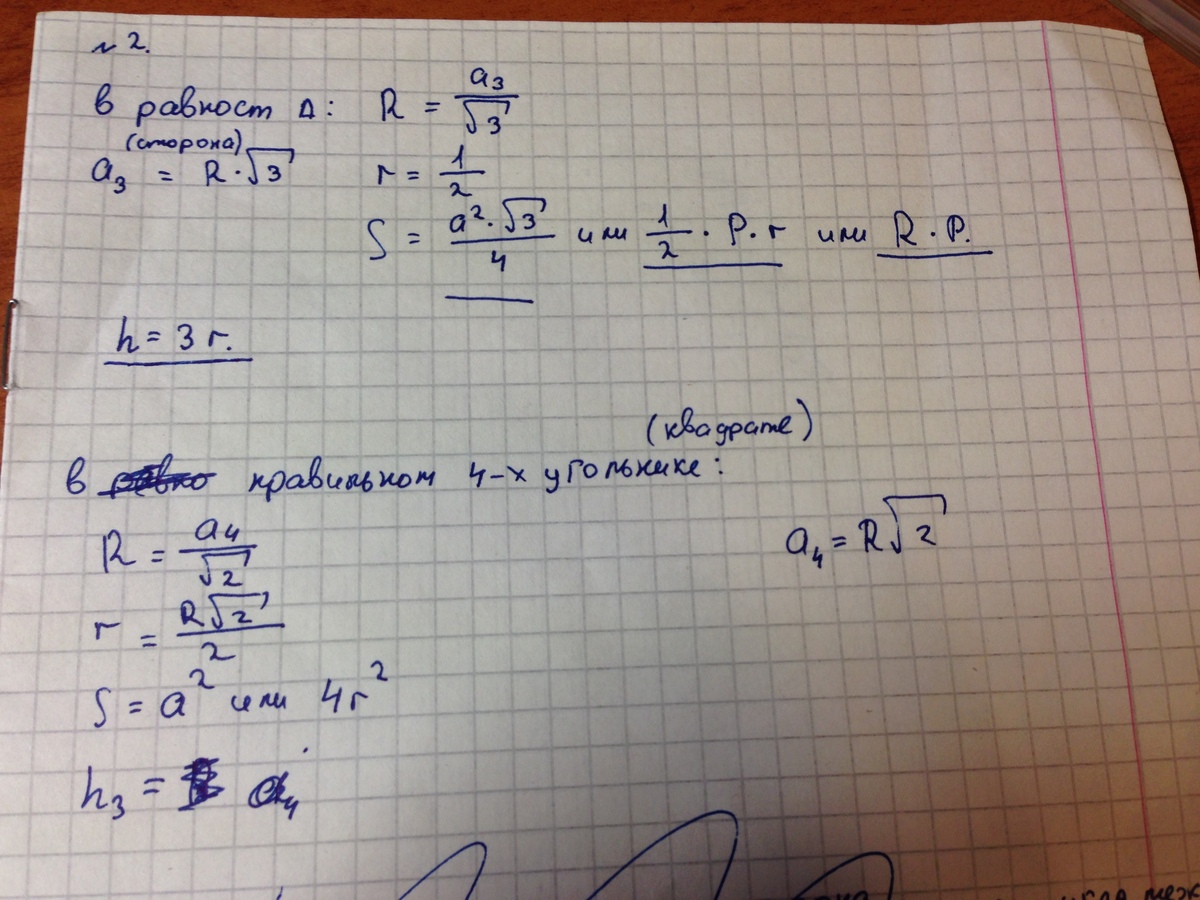 №2.
в равност Δ: R = a₃/√3
(сторона)
a₃ = R·√3 r = 1/2
S = a²·√3/4 или 1/2 · P·r или R·P.
h = 3r.
(квадрате)
в правильном 4-х угольнике:
R = a₄/√2 a₄ = R√2
r = R√2/2
S = a² или 4r²
h₃ = a₄